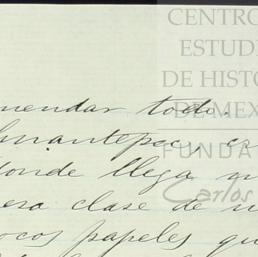 CENTRO
ESTUDI
DE HISTO
DE MEX
FUNDA
Carlos
mendar todo.
huantepec,
donde llega
era clase de
ocos papeles qu